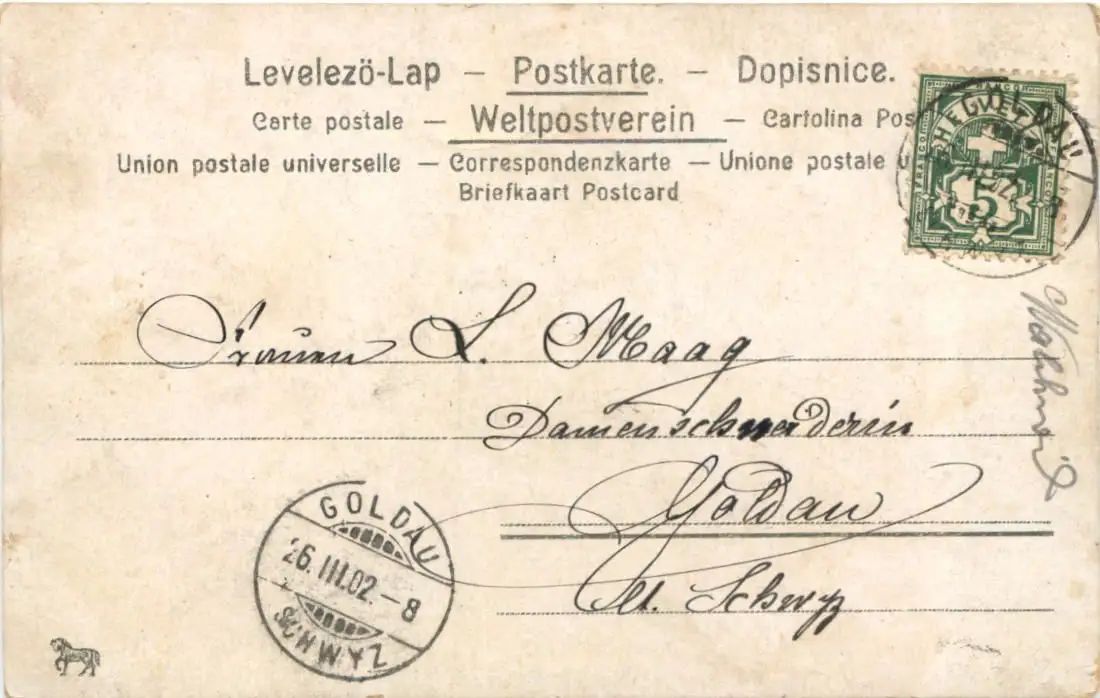 Levelezö-Lap — Postkarte. — Dopisnice.
Carte postale — Weltpostverein — Cartolina Pos
Union postale universelle — Correspondenzkarte — Unione postale u
Briefkaart Postcard
5
Frauen L. Maag
Damenschneiderin
Goldau
Kt. Schwyz
GOLDAU
26.III.02.–8
SCHWYZ